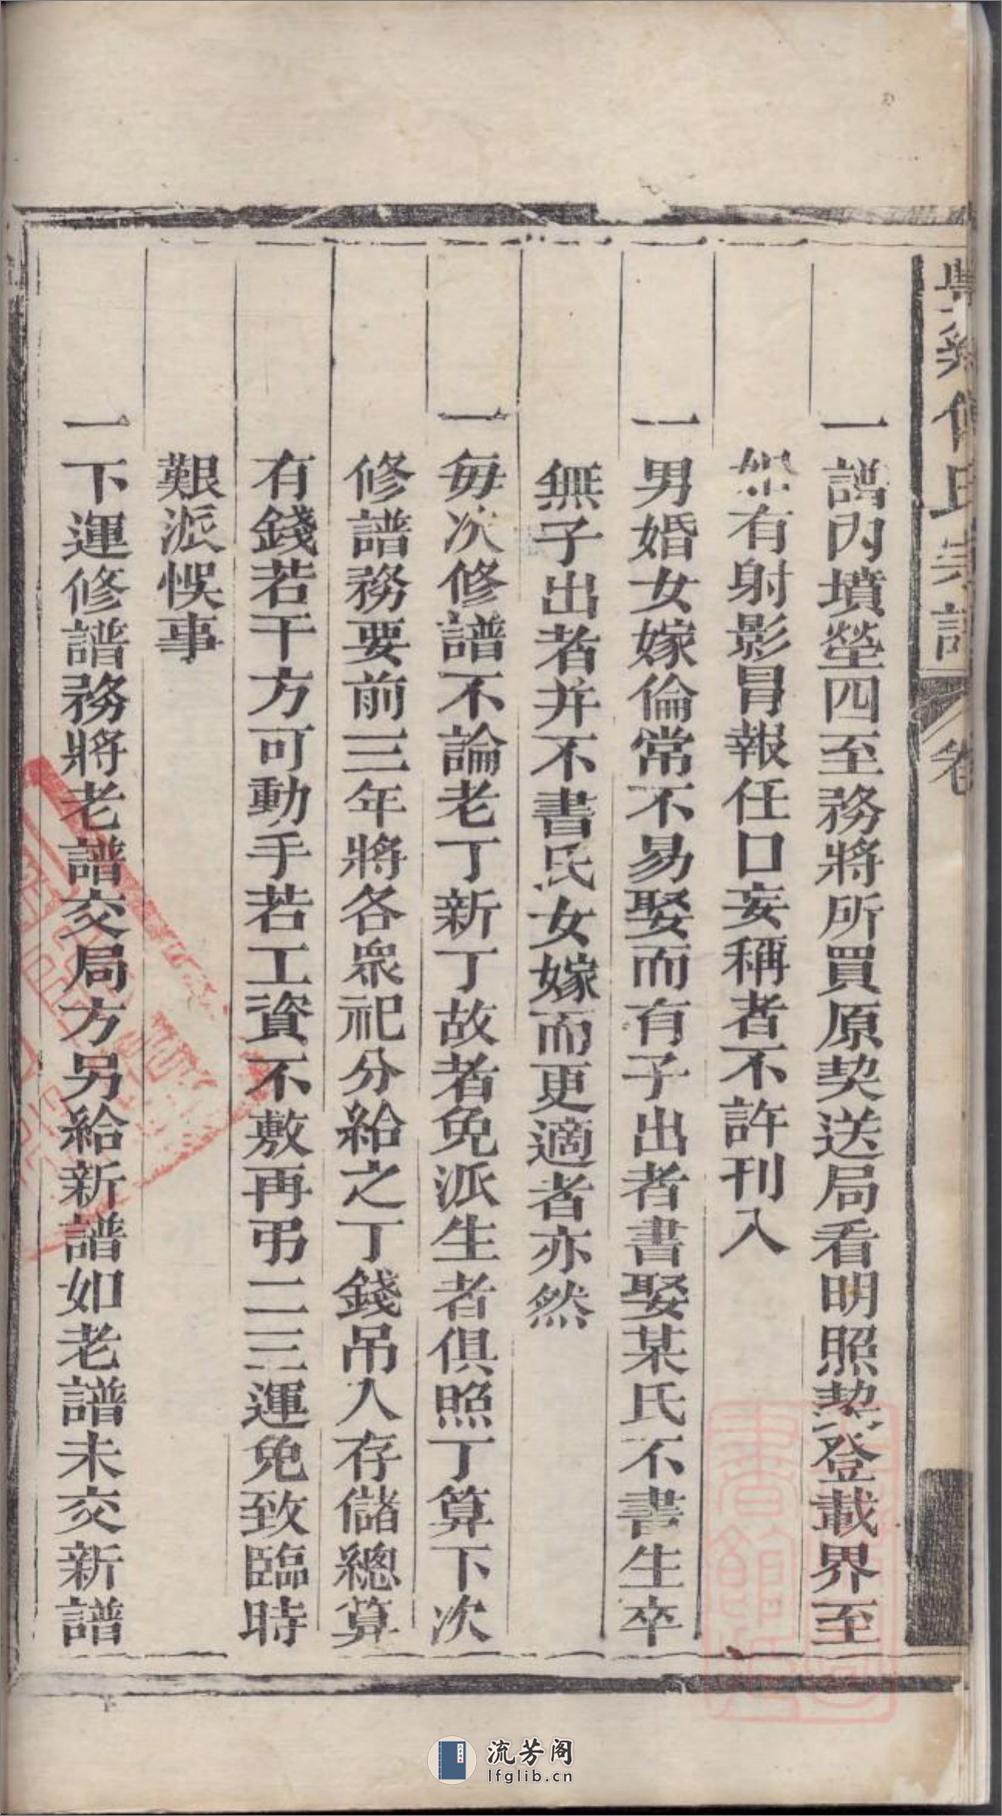 氏宗譜 卷
一譜內墳塋四至務將所買原契送局看明照契登載界至
如有射影冒報任口妄稱者不許刊入
一男婚女嫁倫常不易娶而有子出者書娶某氏不書生卒
無子出者并不書氏女嫁而更適者亦然
一每次修譜不論老丁新丁故者免派生者俱照丁算下次
修譜務要前三年將各眾祀分給之丁錢吊入存儲總算
有錢若干方可動手若工資不敷再弔二三運免致臨時
艱派悞事
一下運修譜務將老譜交局方另給新譜如老譜未交新譜
流芳阁
lfglib.cn